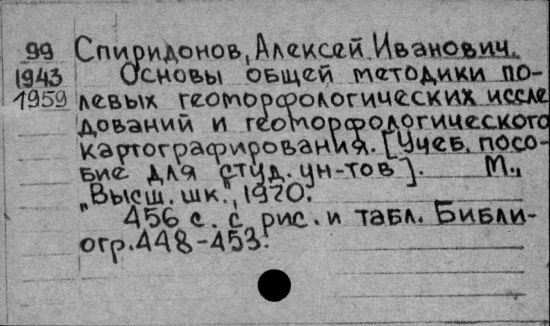 99 Спиридонов, Алексей Иванович.
1943 Основы общей методики по-
1959 левых геоморфологических иссле
дований и геоморфологического
картографирования. [Учеб. посо-
бие для студ. ун-тов]. М.,
„Высш. шк.", 1970.
456 с. с рис. и табл. Библи-
огр. 448-453.